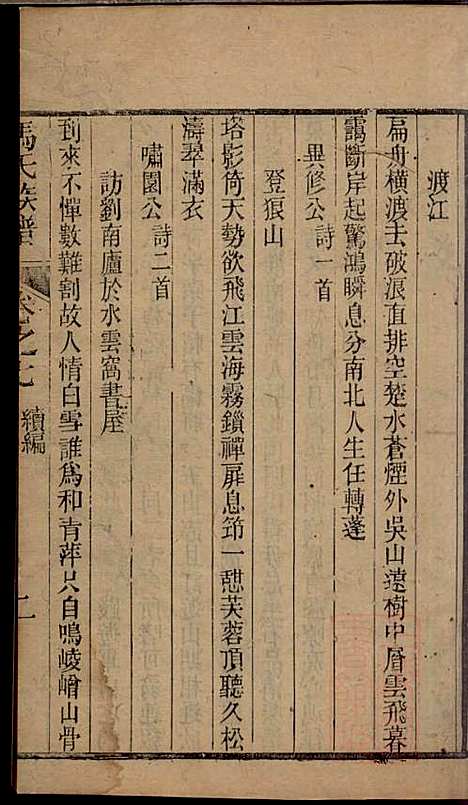 渡江
扁舟橫渡去破浪直排空楚水蒼煙外吳山遠樹中層雲飛暮
靄斷岸起驚鴻瞬息分南北人生任轉蓬
異修公詩一首
登狼山
塔影倚天勢欲飛江雲海霧鎖禪扉息筇一憩芙蓉頂聽久松
濤翠滿衣
嘯園公詩二首
訪劉南廬於水雲窩書屋
到來不憚數難割故人情白雪誰為和青萍只自鳴崚嶒山骨
馮氏族譜 卷之七 續編 二